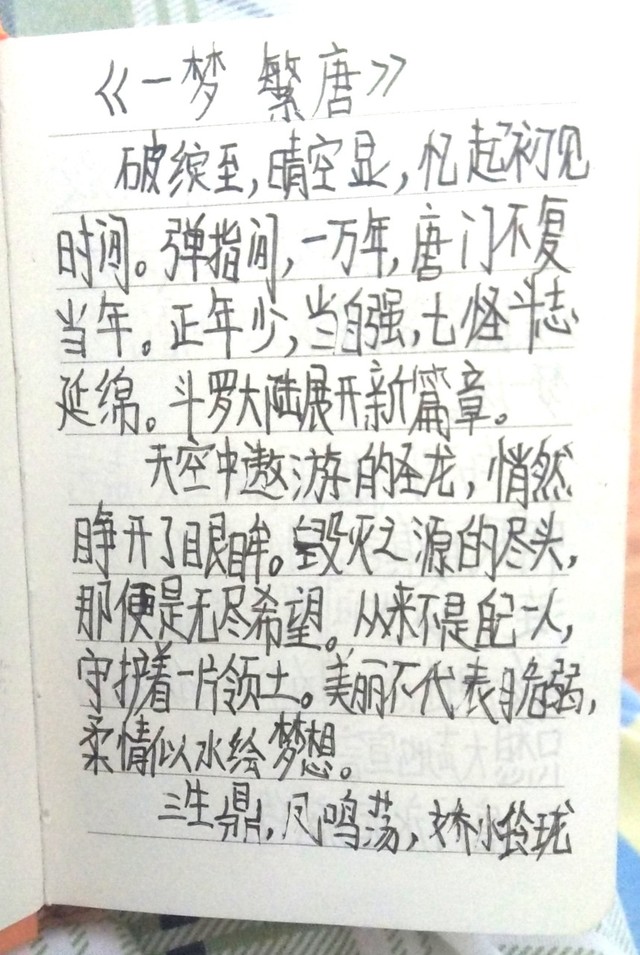 《一梦 繁唐》
破绽至,晴空显,忆起初见
时间。弹指间,一万年,唐门不复
当年。正年少,当自强,七怪斗志
延绵。斗罗大陆展开新篇章。
天空中遨游的圣龙,悄然
睁开了眼眸。毁灭之源的尽头,
那便是无尽希望。从来不是配一人,
守护着一片领土。美丽不代表脆弱,
柔情似水绘梦想。
三生鼎,凤鸣荡,娇小铃珑